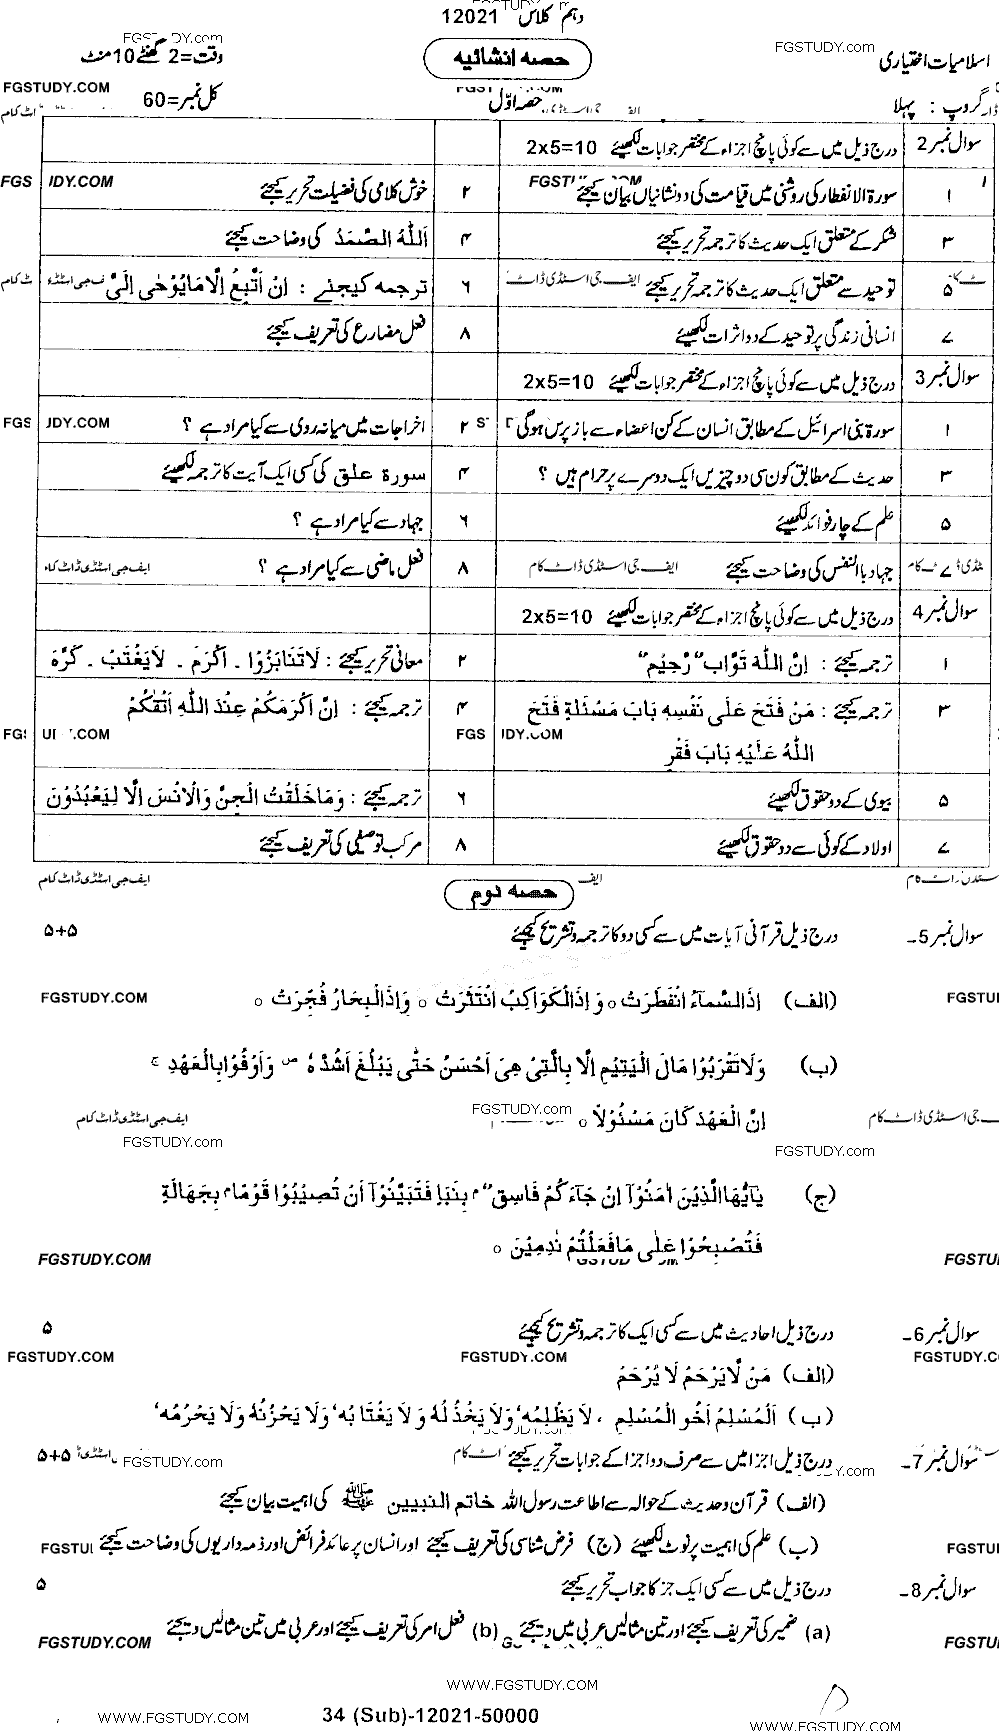 دہم کلاس 12021
FGSTUDY.com
FGSTUDY.com
اسلامیات اختیاری
حصہ انشائیہ
وقت=2 گھنٹے 10 منٹ
FGSTUDY.COM
گروپ : پہلا
حصہ اوّل
کل نمبر=60
سوال نمبر 2 درج ذیل میں سے کوئی پانچ اجزاء کے مختصر جوابات لکھیئے 2x5=10
۱ سورۃ الانفطار کی روشنی میں قیامت کی دو نشانیاں بیان کیجئے ۲ خوش کلامی کی فضیلت تحریر کیجئے
۳ شکر کے متعلق ایک حدیث کا ترجمہ تحریر کیجئے ۴ اَللّٰهُ الصَّمَدُ کی وضاحت کیجئے
۵ توحید سے متعلق ایک حدیث کا ترجمہ تحریر کیجئے ۶ ترجمہ کیجئے : اِنْ اَتَّبِعُ اِلَّا مَا یُوْحٰی اِلَیَّ
۷ انسانی زندگی پر توحید کے دو اثرات لکھیئے ۸ فعل مضارع کی تعریف کیجئے
سوال نمبر 3 درج ذیل میں سے کوئی پانچ اجزاء کے مختصر جوابات لکھیئے 2x5=10
۱ سورۃ بنی اسرائیل کے مطابق انسان کے کن اعضاء سے باز پرس ہوگی ۲ اخراجات میں میانہ روی سے کیا مراد ہے ؟
۳ حدیث کے مطابق کون سی دو چیزیں ایک دوسرے پر حرام ہیں ؟ ۴ سورۃ علق کی کسی ایک آیت کا ترجمہ لکھیئے
۵ علم کے چار فوائد لکھیئے ۶ جہاد سے کیا مراد ہے ؟
۷ جہاد بالنفس کی وضاحت کیجئے ۸ فعل ماضی سے کیا مراد ہے ؟
ایف جی اسٹڈی ڈاٹ کام
سوال نمبر 4 درج ذیل میں سے کوئی پانچ اجزاء کے مختصر جوابات لکھیئے 2x5=10
۱ ترجمہ کیجئے : اِنَّ اللّٰهَ تَوَّابٌ رَّحِیْمٌ ۲ معانی تحریر کیجئے : لَا تَنَابَزُوْا ۔ اَکْرَمَ ۔ لَا یَغْتَبْ ۔ کَرَّہَ
۳ ترجمہ کیجئے : مَنْ فَتَحَ عَلٰی نَفْسِهٖ بَابَ مَسْئَلَةٍ فَتَحَ ۴ ترجمہ کیجئے : اِنَّ اَکْرَمَکُمْ عِنْدَ اللّٰهِ اَتْقٰکُمْ
اللّٰهُ عَلَیْهِ بَابَ فَقْرٍ
۵ بیوی کے دو حقوق لکھیئے ۶ ترجمہ کیجئے : وَمَا خَلَقْتُ الْجِنَّ وَالْاِنْسَ اِلَّا لِیَعْبُدُوْنَ
۷ اولاد کے کوئی سے دو حقوق لکھیئے ۸ مرکب توصیفی کی تعریف کیجئے
ایف جی اسٹڈی ڈاٹ کام
حصہ دوم
سوال نمبر 5۔ درج ذیل قرآنی آیات میں سے کسی دو کا ترجمہ و تشریح کیجئے ۵+۵
FGSTUDY.COM
(الف) اِذَا السَّمَآءُ انْفَطَرَتْ ○ وَ اِذَا الْکَوَاکِبُ انْتَثَرَتْ ○ وَاِذَا الْبِحَارُ فُجِّرَتْ ○
(ب) وَلَا تَقْرَبُوْا مَالَ الْیَتِیْمِ اِلَّا بِالَّتِیْ هِیَ اَحْسَنُ حَتّٰی یَبْلُغَ اَشُدَّهٗ ص وَاَوْفُوْا بِالْعَهْدِ ج
اِنَّ الْعَهْدَ کَانَ مَسْئُوْلًا ○
FGSTUDY.com
ایف جی اسٹڈی ڈاٹ کام
FGSTUDY.com
FGSTUDY.com
(ج) یٰۤاَیُّهَا الَّذِیْنَ اٰمَنُوْۤا اِنْ جَآءَکُمْ فَاسِقٌ م بِنَبَاٍ فَتَبَیَّنُوْۤا اَنْ تُصِیْبُوْا قَوْمًا م بِجَهَالَةٍ
فَتُصْبِحُوْا عَلٰی مَا فَعَلْتُمْ نٰدِمِیْنَ ○
FGSTUDY.COM
سوال نمبر 6۔ درج ذیل احادیث میں سے کسی ایک کا ترجمہ و تشریح کیجئے ۵
FGSTUDY.COM
FGSTUDY.COM
(الف) مَنْ لَّا یَرْحَمْ لَا یُرْحَمْ
(ب) اَلْمُسْلِمُ اَخُو الْمُسْلِمِ ، لَا یَظْلِمُهٗ وَلَا یَخْذُ لُهٗ وَ لَا یَغْتَا بُهٗ وَلَا یَحْزُنُهٗ وَ لَا یَحْرُمُهٗ
سوال نمبر 7۔ درج ذیل اجزا میں سے صرف دو اجزا کے جوابات تحریر کیجئے ۵+۵
FGSTUDY.com
(الف) قرآن و حدیث کے حوالہ سے اطاعت رسول اللہ خاتم النبیین ﷺ کی اہمیت بیان کیجئے
(ب) علم کی اہمیت پر نوٹ لکھیئے (ج) فرض شناسی کی تعریف کیجئے اور انسان پر عائد فرائض اور ذمہ داریوں کی وضاحت کیجئے
سوال نمبر 8۔ درج ذیل میں سے کسی ایک جز کا جواب تحریر کیجئے ۵
(a) ضمیر کی تعریف کیجئے اور تین مثالیں عربی میں دیجئے (b) فعل امر کی تعریف کیجئے اور عربی میں تین مثالیں دیجئے
FGSTUDY.COM
WWW.FGSTUDY.COM
34 (Sub)-12021-50000
WWW.FGSTUDY.COM
WWW.FGSTUDY.COM